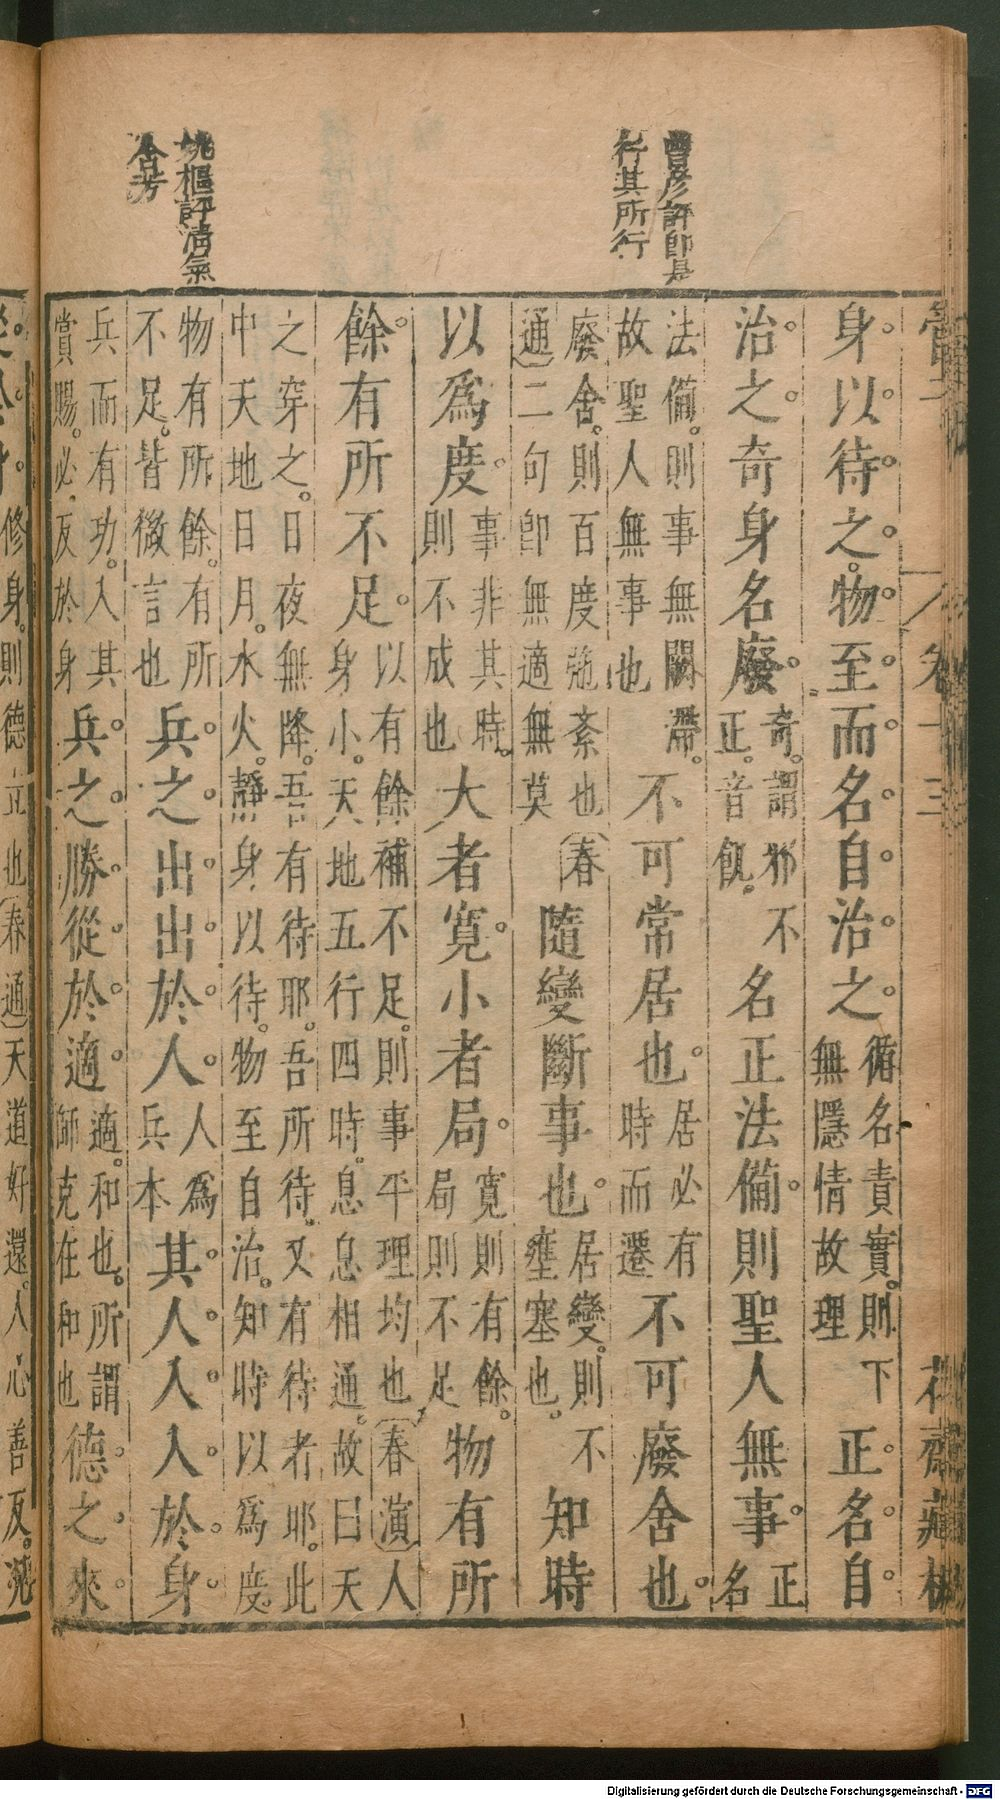 曹彥評即是
行其所行
姚樞評清氣
合考
管子
卷十三
花齋藏板
身以待之物至而名自治之循名責實則下無隱情故理正名自
治之奇身名廢奇謂邪不正音飢名正法備則聖人無事正名
法備則事無闕滯故聖人無事也不可常居也居必有時而遷不可廢舍也
廢舍則百度弛紊也(春通)二句即無適無莫隨變斷事也居變則不壅塞也知時
以為度事非其時則不成也大者寬小者局寬則有餘局則不足物有所
餘有所不足以有餘補不足則事平理均也(春演)人身小天地五行四時息息相通故曰天
之穿之日夜無降吾有待耶吾所待又有待者耶此中天地日月水火靜身以待物至自治知時以為度
物有所餘有所不足皆微言也兵之出出於人人為兵本其人入入於身
兵而有功入其賞賜必反於身兵之勝從於適適和也所謂師克在和也德之來
從於身修身則德立也(春通)天道好還人心善反